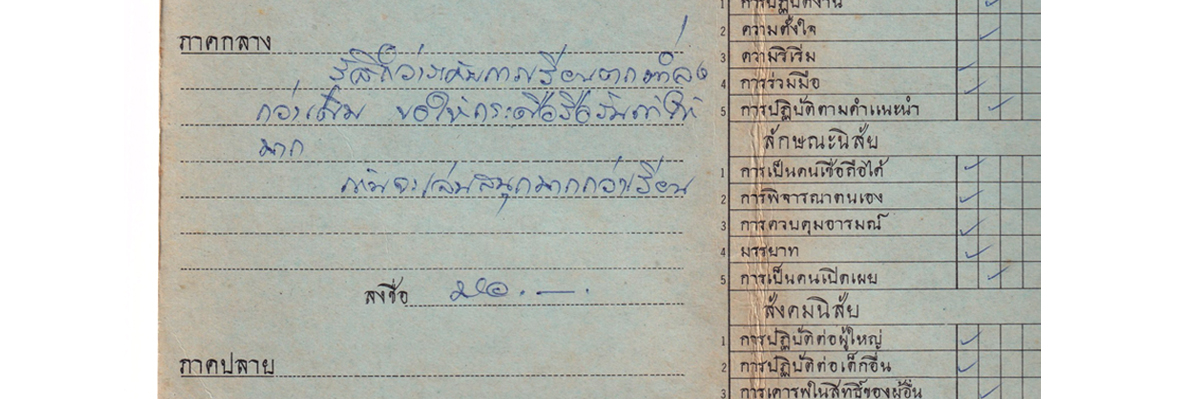 ภาคกลาง
รู้สึกว่าระดับการเรียนตกต่ำลง
กว่าเดิม ขอให้กระตือรือร้นกว่านี้ให้
มาก
เล่นสนุกมากกว่าเรียน
ลงชื่อ
ภาคปลาย
1 การปฏิบัติงาน
2 ความตั้งใจ
3 ความริเริ่ม
4 การร่วมมือ
5 การปฏิบัติตามคำแนะนำ
ลักษณะนิสัย
1 การเป็นคนเชื่อถือได้
2 การพิจารณาตนเอง
3 การควบคุมอารมณ์
4 มรรยาท
5 การเป็นคนเปิดเผย
สังคมนิสัย
1 การปฏิบัติต่อผู้ใหญ่
2 การปฏิบัติต่อเด็กอื่น
3 การเคารพในสิทธิ์ของผู้อื่น